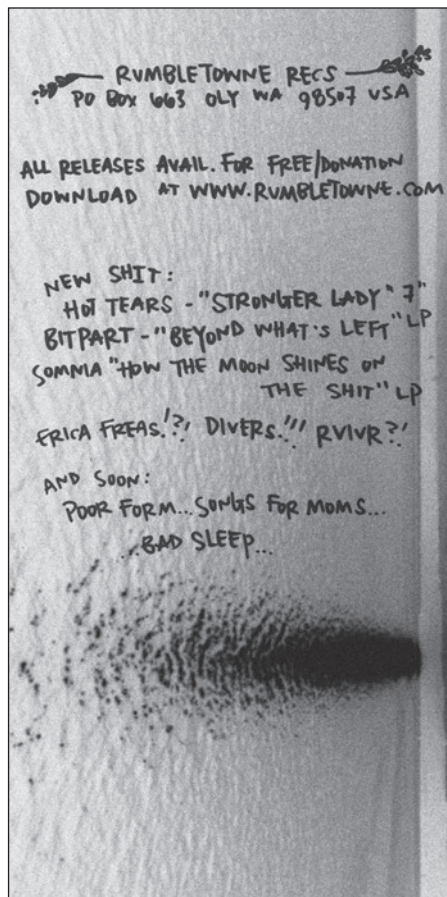 RUMBLETOWNE RECS
PO BOX 663 OLY WA 98507 USA
ALL RELEASES AVAIL. FOR FREE/DONATION
DOWNLOAD AT WWW.RUMBLETOWNE.COM
NEW SHIT:
HOT TEARS - "STRONGER LADY" 7"
BITPART - "BEYOND WHAT'S LEFT" LP
SOMNIA "HOW THE MOON SHINES ON
THE SHIT" LP
ERICA FREAS!?! DIVERS!!! RVIVR?!
AND SOON:
POOR FORM... SONGS FOR MOMS...
...BAD SLEEP...